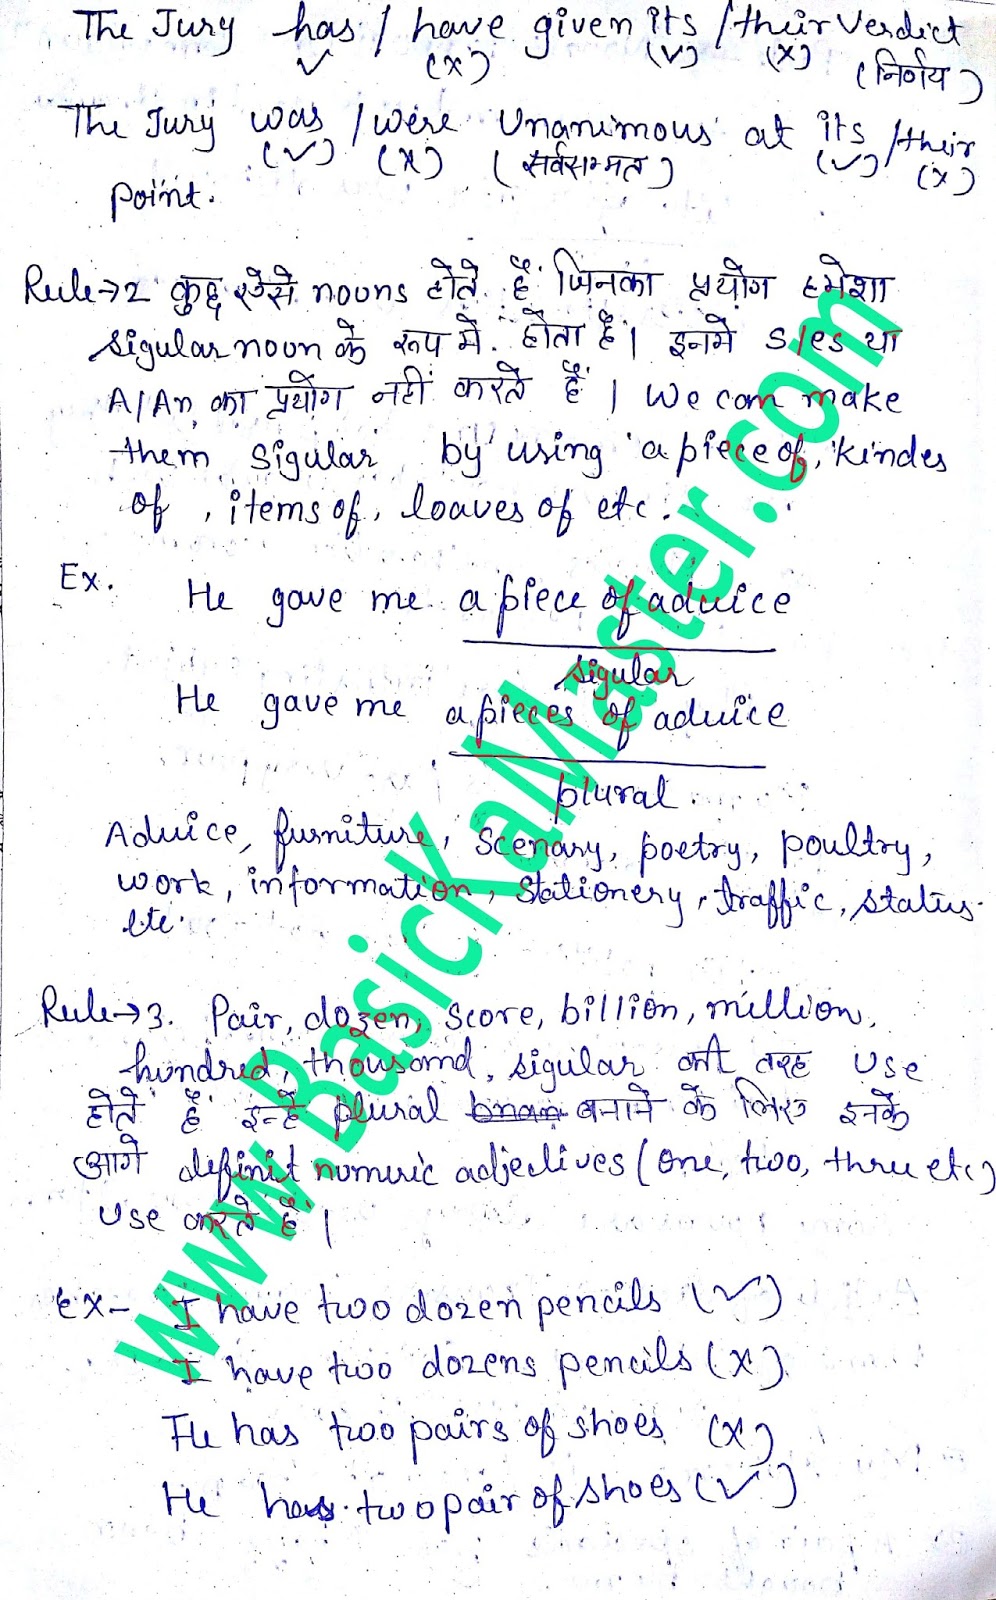 The Jury has / have given its / their verdict
✓ (x) (✓) (x) (निर्णय)
The Jury was / were Unanimous at its / their
(✓) (x) (सर्वसम्मत) (✓) (x)
point.
Rule→2 कुछ ऐसे nouns होते हैं जिनका प्रयोग हमेशा
sigular noun के रूप में होता है। इनमे s/es या
A/An का प्रयोग नहीं करते हैं। We can make
them sigular by using a piece of, kindes
of, items of, loaves of etc.
Ex. He gave me a piece of advice
sigular
He gave me a pieces of advice
plural.
Advice, furniture, scenary, poetry, poultry,
work, information, stationery, traffic, status.
etc.
Rule→3. Pair, dozen, score, billion, million,
hundred, thousand, sigular की तरह use
होते हैं इन्हें plural बनाने के लिए इनके
आगे definit numeric adjectives (one, two, three etc)
use करते हैं।
Ex- I have two dozen pencils (✓)
I have two dozens pencils (x)
He has two pairs of shoes (x)
He has two pair of shoes (✓)
www.BasicKaMaster.com